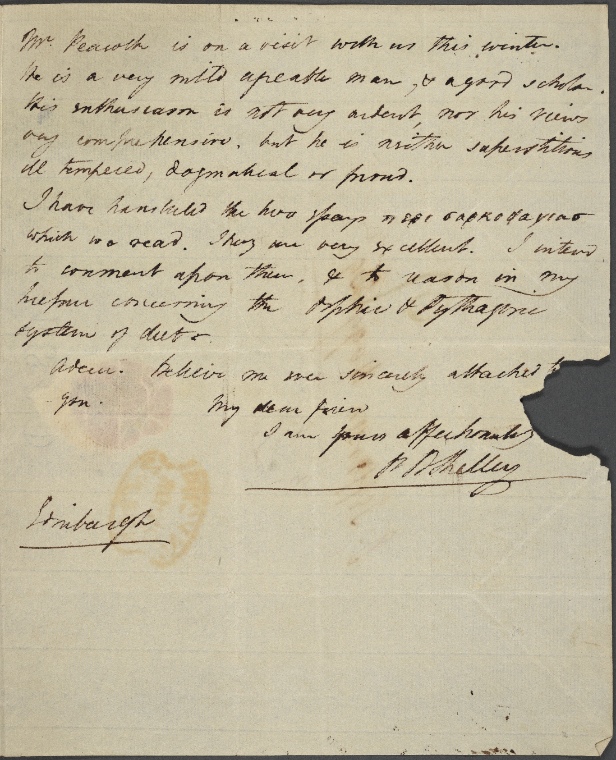 Mr. Peacock is on a visit with us this winter.
He is a very mild agreable man, & a good scholar.
His enthusiasm is not very ardent, nor his views
very comprehensive. but he is neither superstitious
ill tempered, dogmatical or proud.
I have translated the two Essays περι σαρκοφαγιασ
which we read. They are very excellent. I intend
to comment upon them, & to reason in my
preface concerning the Orphic & Pythagoric
system of diet.
Adieu. Believe me ever sincerely attached to
you. My dear friend
I am yours affectionately
P B Shelley
Edinburgh